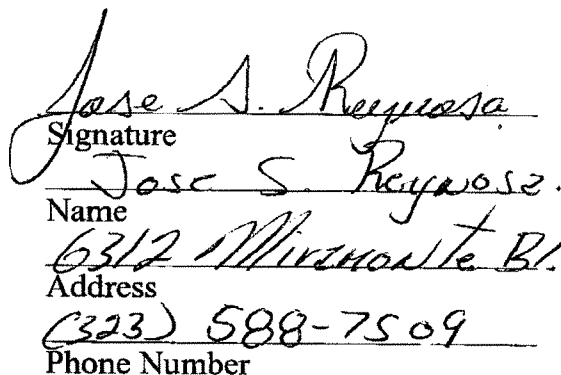 Jose S. Reynosa
Signature
Jose S. Reynosa.
Name
6312 Miramonte Bl.
Address
(323) 588-7509
Phone Number